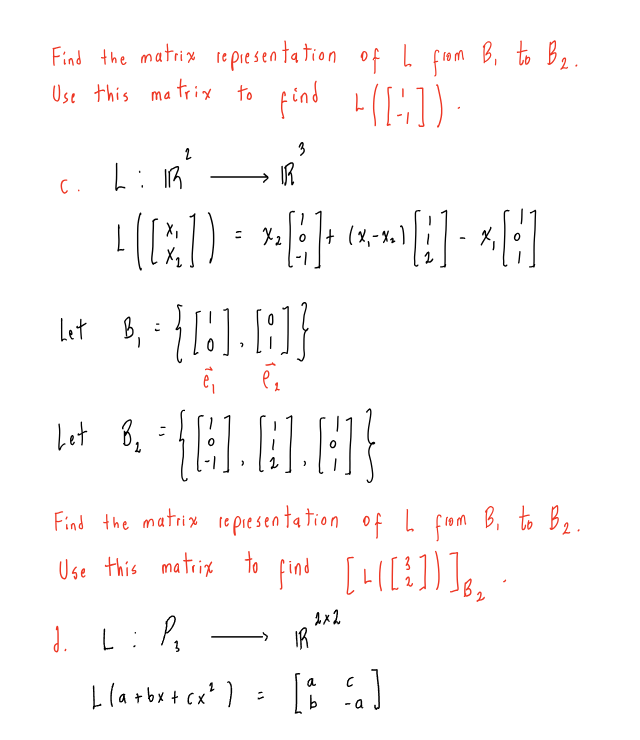 Find the matrix representation of L from B₁ to B₂.
Use this matrix to find L([1; -1]).
c. L : ℝ² ⟶ ℝ³
L([x₁; x₂]) = x₂[1; 0; -1] + (x₁-x₂)[1; 1; 2] - x₁[1; 0; 1]
Let B₁ = {[1; 0], [0; 1]}
e⃗₁ e⃗₂
Let B₂ = {[1; 0; -1], [1; 1; 2], [1; 0; 1]}
Find the matrix representation of L from B₁ to B₂.
Use this matrix to find [L([3; 2])]_B₂.
d. L : P₃ ⟶ ℝ²ˣ²
L(a + bx + cx²) = [a c; b -a]